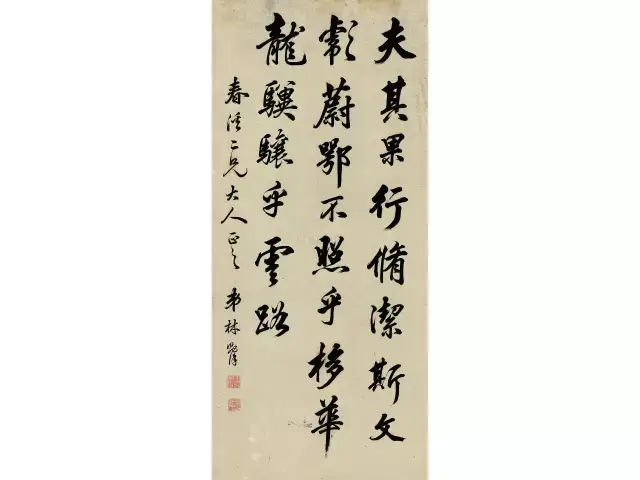 夫其果行脩潔斯文
彪蔚鄂不照乎栘華
龍驥驤乎雲路
春二兄大人正之 弟林